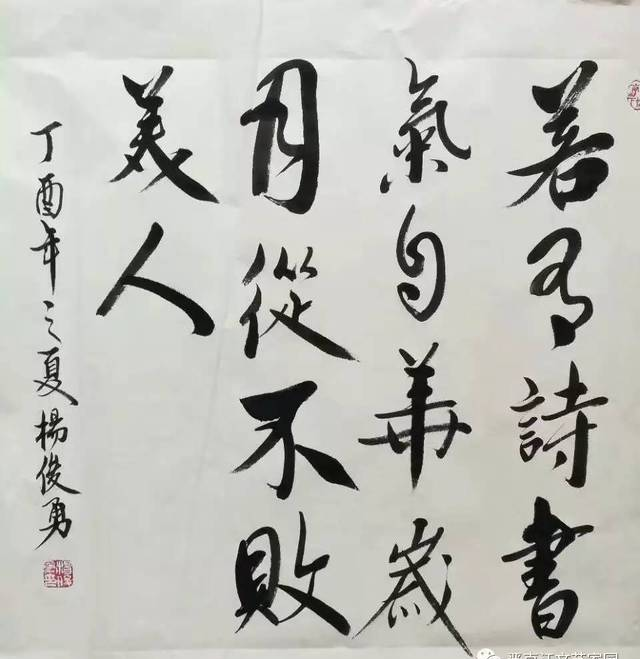 若有詩書
氣自華歲
月從不敗
美人
丁酉年之夏楊俊勇